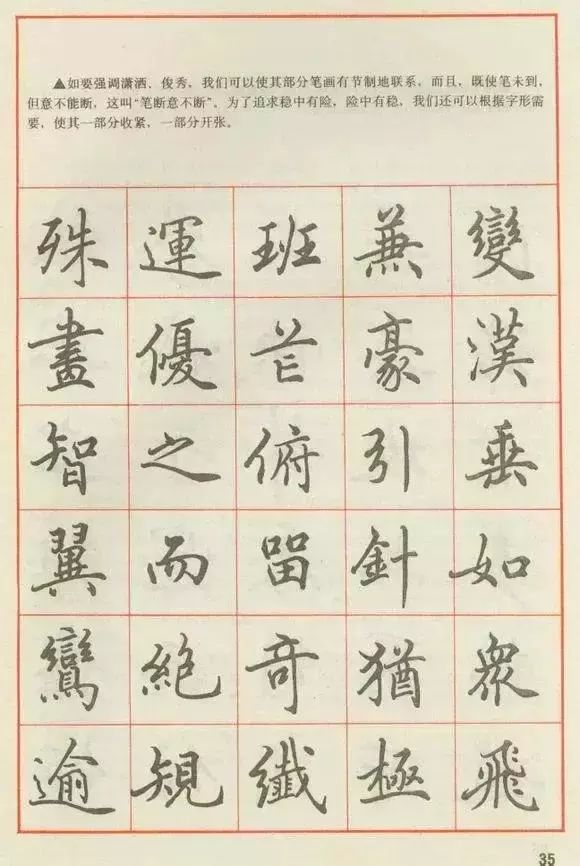 ▲如要强调潇洒、俊秀，我们可以使其部分笔画有节制地联系，而且，既使笔未到，
但意不能断，这叫“笔断意不断”。为了追求稳中有险，险中有稳，我们还可以根据字形需
要，使其一部分收紧，一部分开张。
殊 運 班 兼 變
畫 優 芒 豪 漢
智 之 俯 引 垂
翼 而 留 針 如
鸞 絶 奇 猶 衆
逾 規 纖 極 飛
35